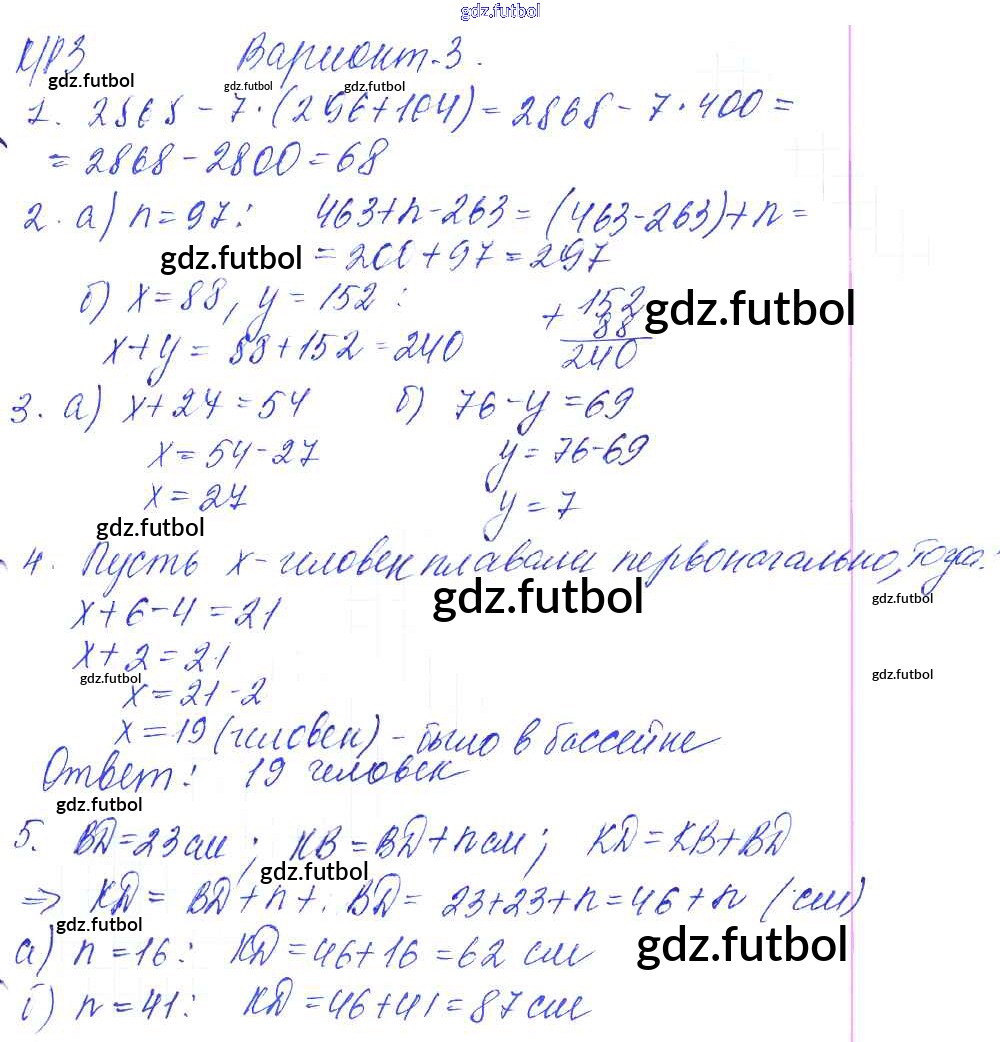 gdz.futbol
К/Р 3 Вариант-3.
gdz.futbol gdz.futbol gdz.futbol
1. 2868 - 7·(296+104) = 2868 - 7·400 =
= 2868 - 2800 = 68
2. а) n = 97: 463+n-263 = (463-263)+n =
gdz.futbol = 200 + 97 = 297
б) x = 88, y = 152: + 152 gdz.futbol
88
x+y = 88+152 = 240 240
3. а) x+24 = 54 б) 76-y = 69
x = 54-27 y = 76-69
x = 27 y = 7
gdz.futbol
4. Пусть x - человек плавали первоначально, тогда:
gdz.futbol gdz.futbol
x+6-4 = 21
x+2 = 21
gdz.futbol gdz.futbol
x = 21-2
x = 19 (человек) - было в бассейне
Ответ: 19 человек
gdz.futbol
5. BD = 23 см; KB = BD + n см; KD = KB+BD
gdz.futbol
=> KD = BD + n + BD = 23+23+n = 46+n (см)
gdz.futbol
а) n = 16: KD = 46+16 = 62 см gdz.futbol
б) n = 41: KD = 46+41 = 87 см